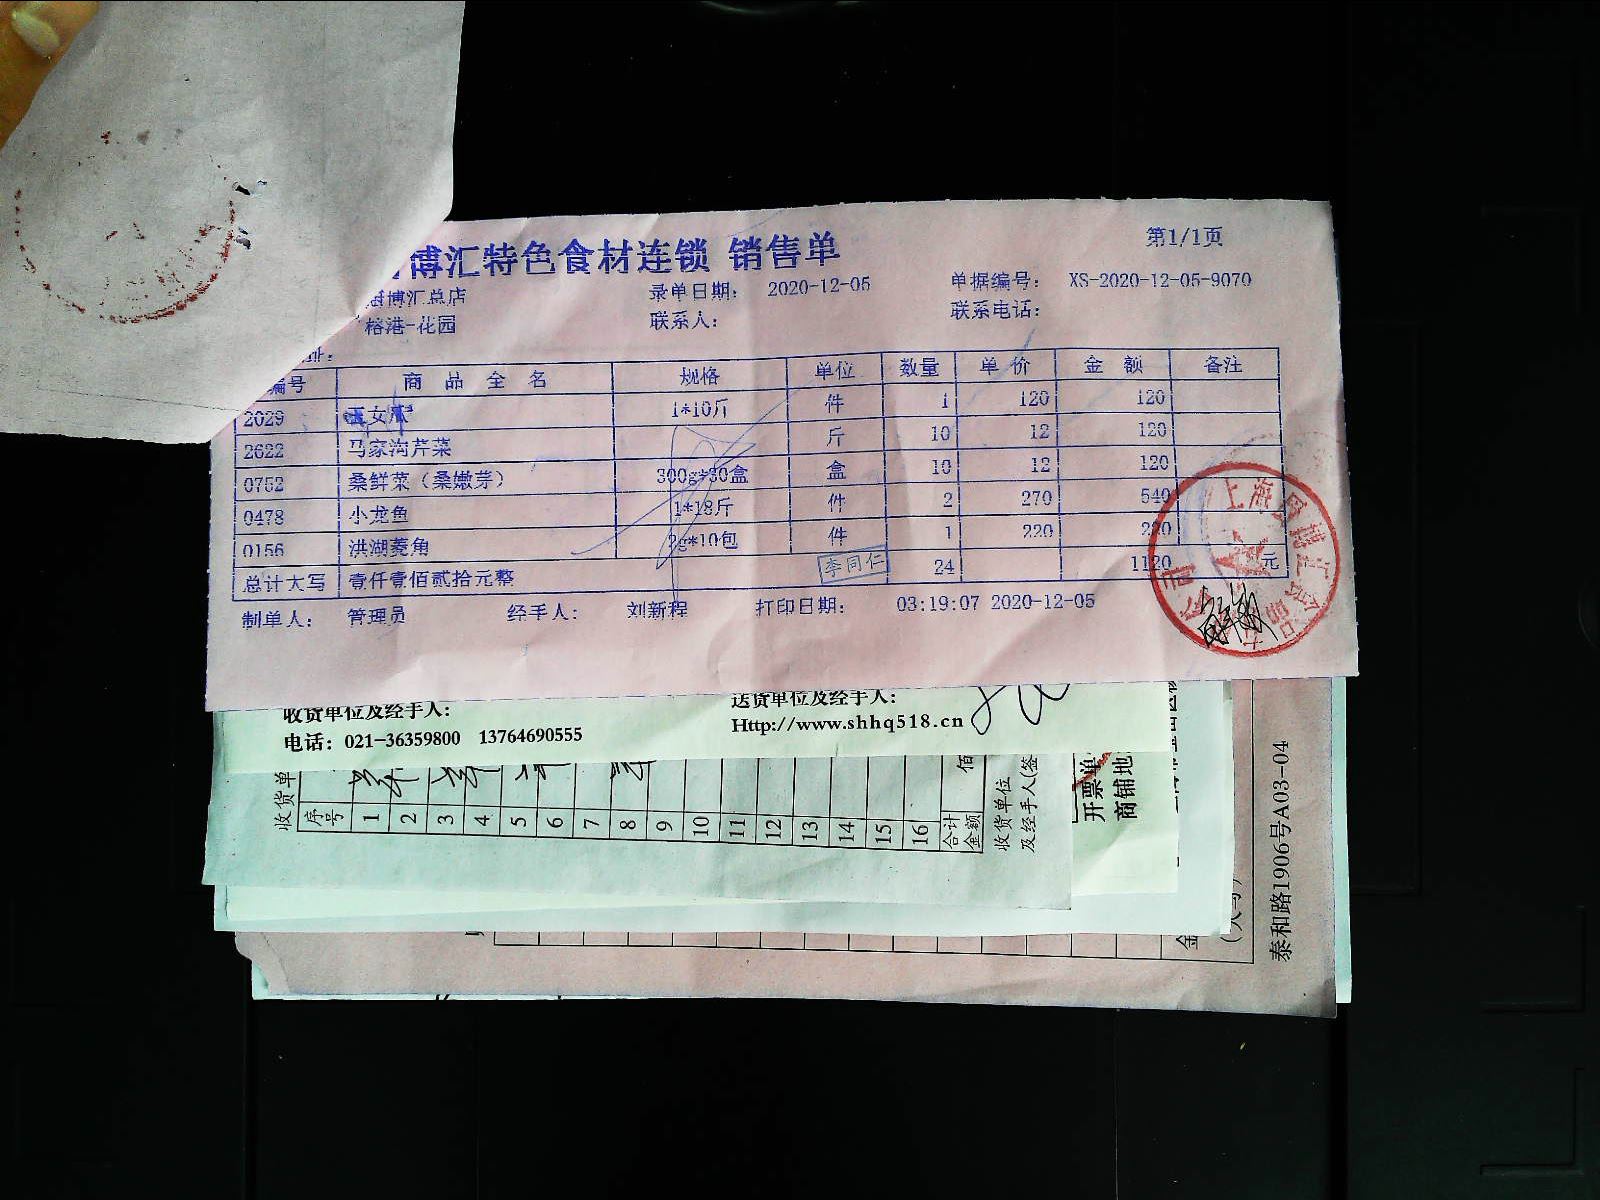 博汇特色食材连锁 销售单
第1/1页
博汇总店 录单日期: 2020-12-05 单据编号: XS-2020-12-05-9070
榕港-花园 联系人: 联系电话:
址:
编号 商品全名 规格 单位 数量 单价 金额 备注
2029 女 1*10斤 件 1 120 120
2622 马家沟芹菜 斤 10 12 120
0752 桑鲜菜（桑嫩芽） 300g*30盒 盒 10 12 120
0478 小龙鱼 1*18斤 件 2 270 540
0156 洪湖菱角 g*10包 件 1 220 220
总计大写 壹仟壹佰贰拾元整 李同仁 24 1120 元
制单人: 管理员 经手人: 刘新程 打印日期: 03:19:07 2020-12-05
上海 博汇食品 公司
收货单位及经手人: 送货单位及经手人:
电话: 021-36359800 13764690555 Http://www.shhq518.cn
收货单
序号 1 2 3 4 5 6 7 8 9 10 11 12 13 14 15 16 合计金额 佰
收货单位及经手人(签
开票单
商铺地
泰和路1906号A03-04